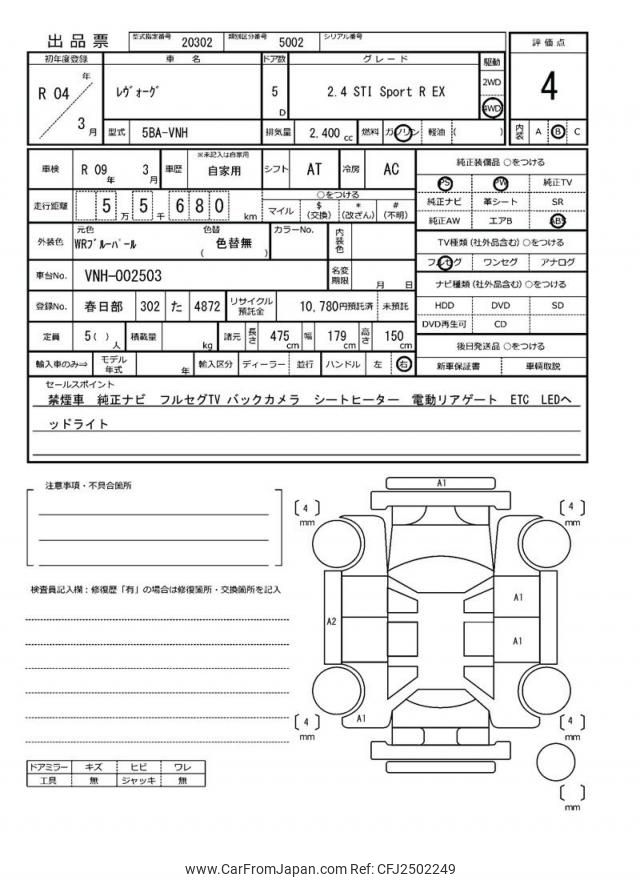 出品票 型式指定番号 20302 類別区分番号 5002 シリアル番号
初年度登録 車名 ドア数 グレード 駆動 評価点
R 04 年 3 月 ﾚｳﾞｫｰｸﾞ 5 D 2.4 STI Sport R EX 2WD 4WD 4
型式 5BA-VNH 排気量 2,400 cc 燃料 ガソリン 軽油 ( ) 内装 A B C
車検 R 09 年 3 月 車歴 ※未記入は自家用 自家用 シフト AT 冷房 AC
走行距離 5 万 5 千 6 8 0 km ○をつける マイル $(交換) *(改ざん) #(不明)
外装色 元色 WRﾌﾞﾙｰﾊﾟｰﾙ 色替 ( 色替無 ) カラーNo. 内装色
車台No. VNH-002503 名変期限 月 日
登録No. 春日部 302 た 4872 リサイクル預託金 10,780円預託済 未預託
定員 5 ( ) 人 積載量 kg 諸元 長さ 475 cm 幅 179 cm 高さ 150 cm
輸入車のみ⇒ モデル年式 年 輸入区分 ディーラー 並行 ハンドル 左 右
純正装備品 ○をつける
PS PW 純正TV
純正ナビ 革シート SR
純正AW エアB ABS
TV種類 (社外品含む) ○をつける
フルセグ ワンセグ アナログ
ナビ種類 (社外品含む) ○をつける
HDD DVD SD
DVD再生可 CD
後日発送品 ○をつける
新車保証書 車輌取説
セールスポイント
禁煙車 純正ナビ フルセグTV バックカメラ シートヒーター 電動リアゲート ETC LEDヘ
ッドライト
注意事項・不具合箇所
検査員記入欄：修復歴「有」の場合は修復箇所・交換箇所を記入
ドアミラー キズ ヒビ ワレ
工具 無 ジャッキ 無
A1
[ 4 ] mm
[ 4 ] mm
A1
A2
A1
A1
[ 4 ] mm
[ 4 ] mm
[ ] mm
www.CarFromJapan.com Ref: CFJ2502249